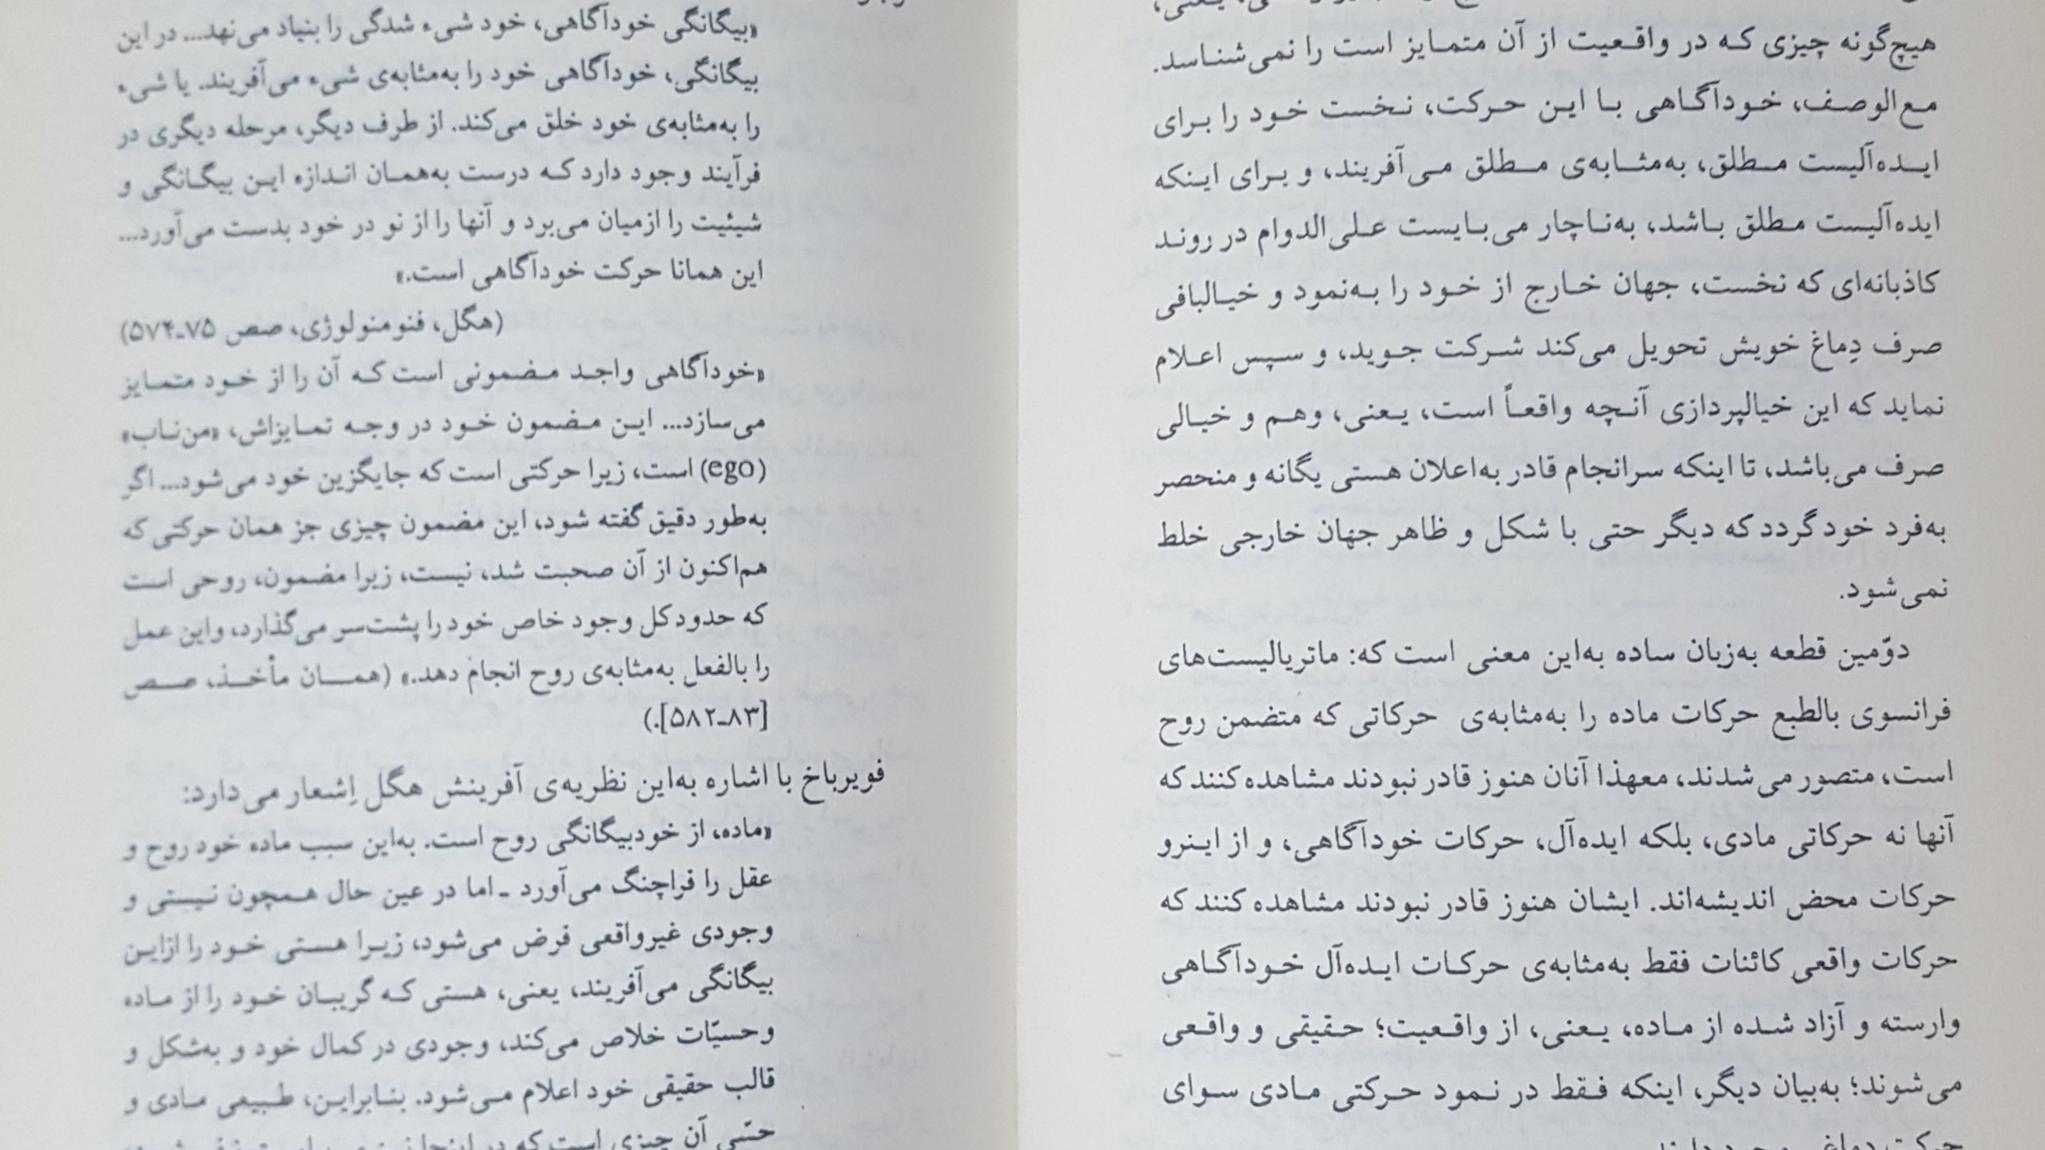 هیچ‌گونه چیزی که در واقعیت از آن متمایز است را نمی‌شناسد.
مع‌الوصف، خودآگاهی با این حرکت، نخست خود را برای
ایده‌آلیست مطلق، به‌مثابه‌ی مطلق می‌آفریند، و برای اینکه
ایده‌آلیست مطلق باشد، به‌ناچار می‌بایست علی‌الدوام در روند
کاذبانه‌ای که نخست، جهان خارج از خود را به‌نمود و خیالبافی
صرف دِماغ خویش تحویل می‌کند شرکت جوید، و سپس اعلام
نماید که این خیالپردازی آنچه واقعاً است، یعنی، وهم و خیالی
صرف می‌باشد، تا اینکه سرانجام قادر به‌اعلان هستی یگانه و منحصر
به‌فرد خود گردد که دیگر حتی با شکل و ظاهر جهان خارجی خلط
نمی‌شود.
دوّمین قطعه به‌زبان ساده به‌این معنی است که: ماتریالیست‌های
فرانسوی بالطبع حرکات ماده را به‌مثابه‌ی حرکاتی که متضمن روح
است، متصور می‌شدند، معهذا آنان هنوز قادر نبودند مشاهده کنند که
آنها نه حرکاتی مادی، بلکه ایده‌آل، حرکات خودآگاهی، و از اینرو
حرکات محض اندیشه‌اند. ایشان هنوز قادر نبودند مشاهده کنند که
حرکات واقعی کائنات فقط به‌مثابه‌ی حرکات ایده‌آل خودآگاهی
وارسته و آزاد شده از ماده، یعنی، از واقعیت؛ حقیقی و واقعی
می‌شوند؛ به‌بیان دیگر، اینکه فقط در نمود حرکتی مادی سوای
«بیگانگی خودآگاهی، خود شیء شدگی را بنیاد می‌نهد... در این
بیگانگی، خودآگاهی خود را به‌مثابه‌ی شیء می‌آفریند. یا شیء
را به‌مثابه‌ی خود خلق می‌کند. از طرف دیگر، مرحله دیگری در
فرآیند وجود دارد که درست به‌همان اندازه این بیگانگی و
شیئیت را ازمیان می‌برد و آنها را از نو در خود بدست می‌آورد...
این همانا حرکت خودآگاهی است.»
(هگل، فنومنولوژی، صص ۷۵ـ۵۷۴)
«خودآگاهی واجد مضمونی است که آن را از خود متمایز
می‌سازد... این مضمون خود در وجه تمایزاش، «من‌ناب»
(ego) است، زیرا حرکتی است که جایگزین خود می‌شود... اگر
به‌طور دقیق گفته شود، این مضمون چیزی جز همان حرکتی که
هم‌اکنون از آن صحبت شد، نیست، زیرا مضمون، روحی است
که حدود کل وجود خاص خود را پشت‌سر می‌گذارد، واین عمل
را بالفعل به‌مثابه‌ی روح انجام دهد.» (همان مأخذ، صص
[۸۳ـ۵۸۲].)
فویرباخ با اشاره به‌این نظریه‌ی آفرینش هگل اِشعار می‌دارد:
«ماده، از خودبیگانگی روح است. به‌این سبب ماده خود روح و
عقل را فراچنگ می‌آورد ـ اما در عین حال همچون نیستی و
وجودی غیرواقعی فرض می‌شود، زیرا هستی خود را ازاین
بیگانگی می‌آفریند، یعنی، هستی که گریبان خود را از ماده
وحسیّات خلاص می‌کند، وجودی در کمال خود و به‌شکل و
قالب حقیقی خود اعلام می‌شود. بنابراین، طبیعی مادی و